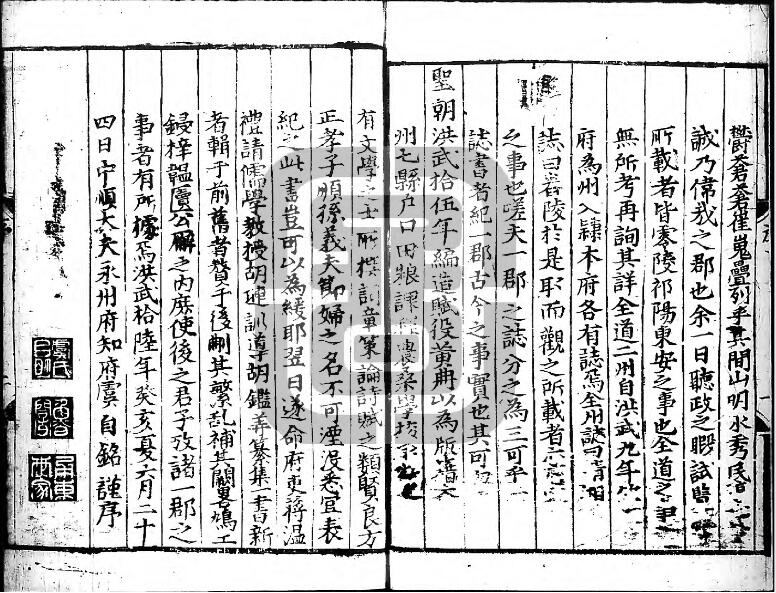 欝蒼蒼崔嵬疊列乎其間山明水秀民
誠乃偉哉之郡也余一日聽政之暇試
所載者皆零陵祁陽東安之事也全道之
無所考再詢其詳全道二州自洪武九年
府為州入隸本府各有誌焉全州誌曰清湘
誌曰舂陵於是耶而觀之所載者
之事也嗟夫一郡之誌分之為三可乎
誌書者紀一郡古今之事實也其可
聖朝洪武拾伍年編造賦役黃冊以為版籍
州七縣戶口田粮課程農桑學校
有文學之士所撰詞章策論詩賦之類賢良方
正孝子順孫義夫節婦之名不可湮沒悉宜表
紀之此書豈可以為緩耶翌日遂命府吏蔣溫
禮請儒學教授胡璉訓導胡鑑等纂集一書新
者輯于前舊者贊于後刪其繁亂補其闕畧鳩工
鋟梓韞匵公廨之內庶使後之君子攷諸一郡之
事者有所據焉洪武拾陸年癸亥夏六月二十
四日中順大夫永州府知府虞自銘謹序